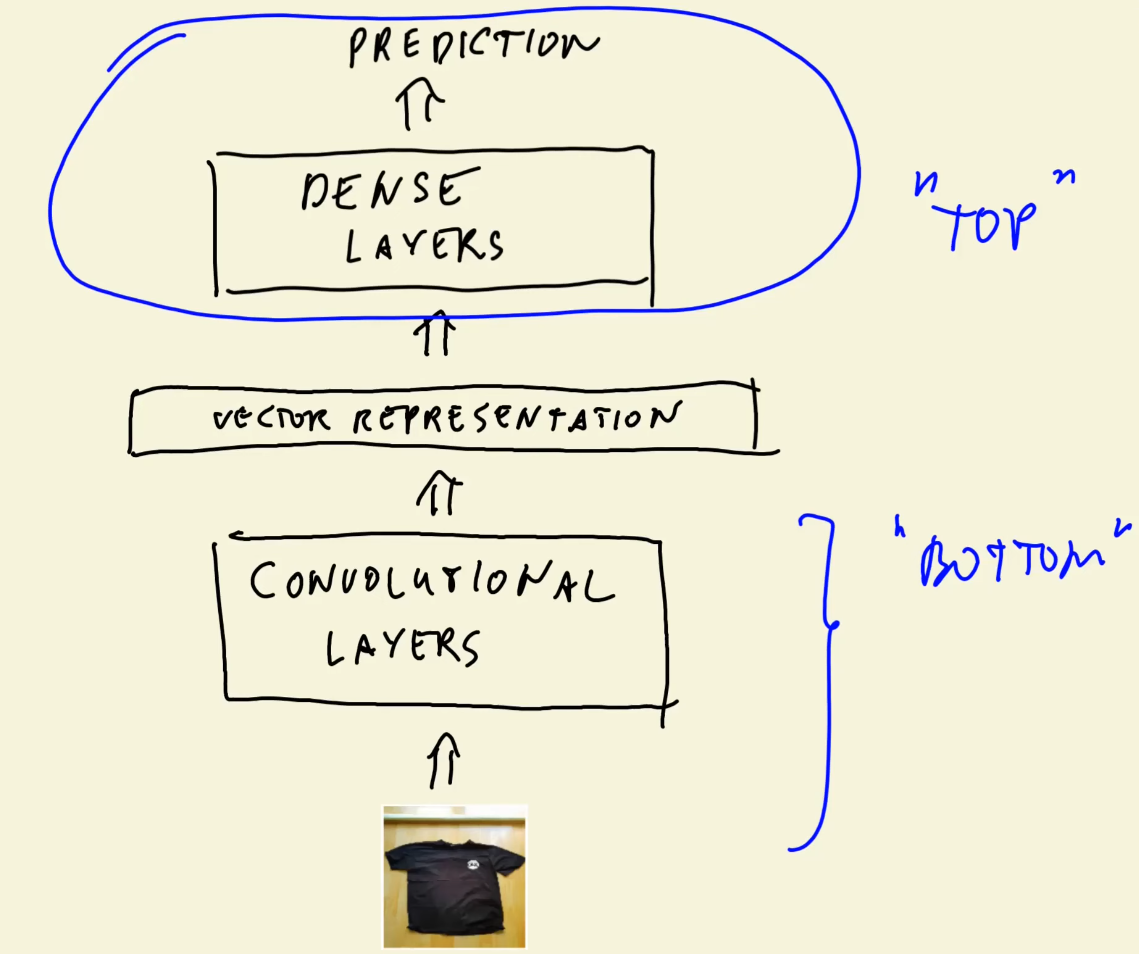 PREDICTION
DENSE
LAYERS
"TOP"
VECTOR REPRESENTATION
CONVOLUTIONAL
LAYERS
"BOTTOM"